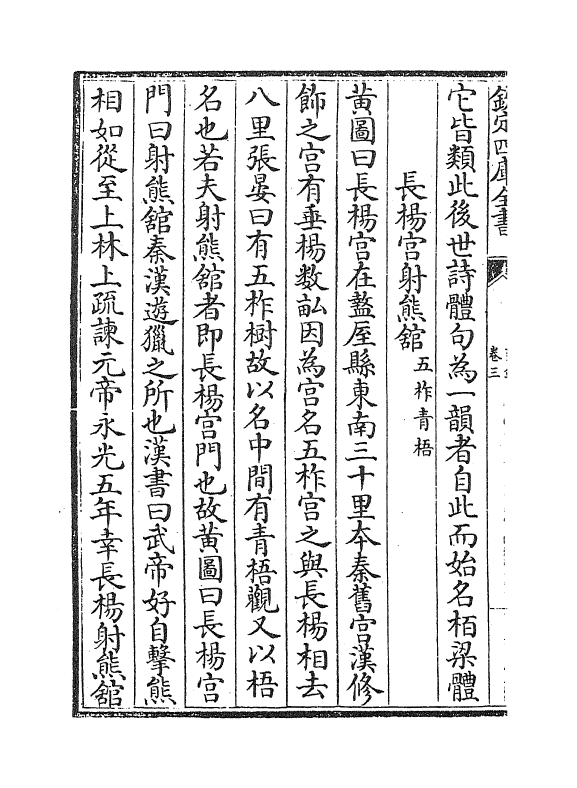 欽定四庫全書
卷三
它皆類此後世詩體句為一韻者自此而始名栢梁體
長楊宫射熊舘五柞青梧
黄圖曰長楊宫在盩厔縣東南三十里本秦舊宫漢修
飾之宫有垂楊数畝因為宫名五柞宫之與長楊相去
八里張晏曰有五柞樹故以名中間有青梧觀又以梧
名也若夫射熊舘者即長楊宫門也故黄圖曰長楊宫
門曰射熊舘秦漢遊獵之所也漢書曰武帝好自擊熊
相如從至上林上疏諫元帝永光五年幸長楊射熊舘